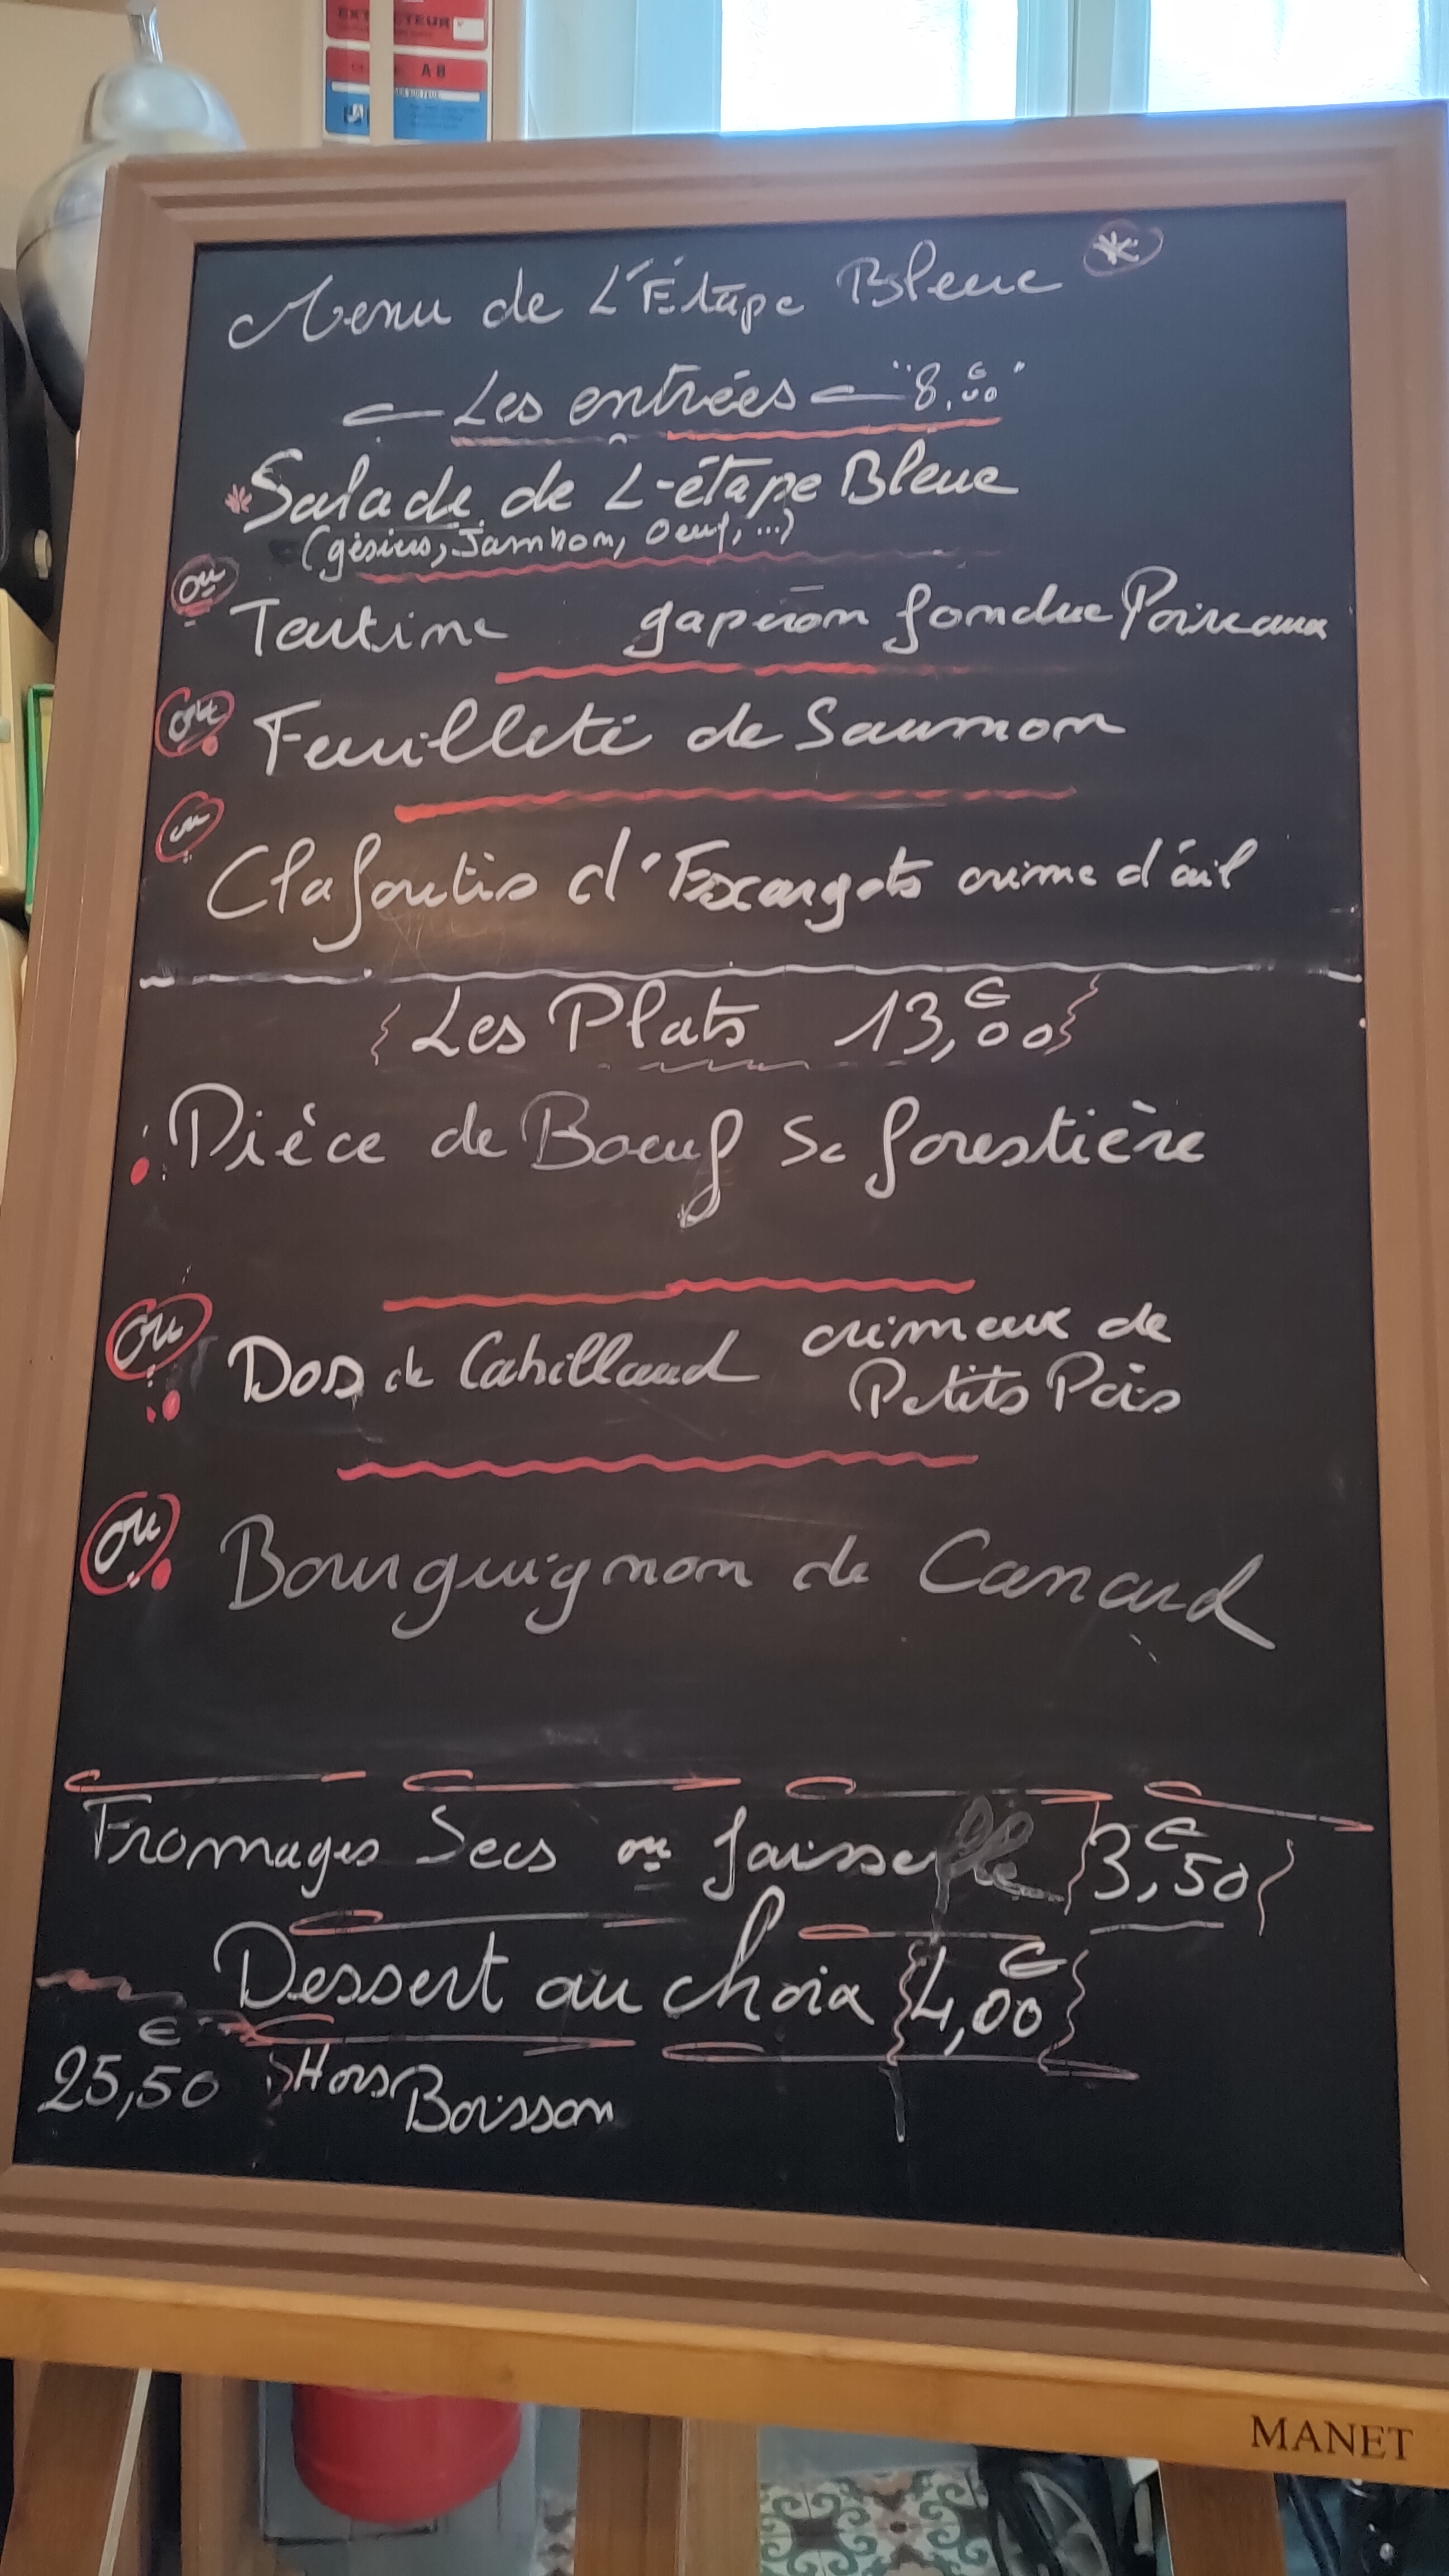 EXTINCTEUR
AB
Menu de L'Étape Bleue *
Les entrées "8,00 €"
* Salade de L-étape Bleue
(gésiers, Jambon, Oeuf, ...)
ou
Tartine gaperon fondue Poireaux
ou
Feuilleté de Saumon
ou
Clafoutis d'Escargots crème d'ail
{ Les Plats 13,00 € }
Pièce de Boeuf Sc forestière
ou
Dos de Cabillaud crémeux de
Petits Pois
ou
Bourguignon de Canard
Fromages Secs ou faisselle } 3,50 € {
Dessert au choix { 4,00 € }
25,50 € Hors
Boisson
MANET